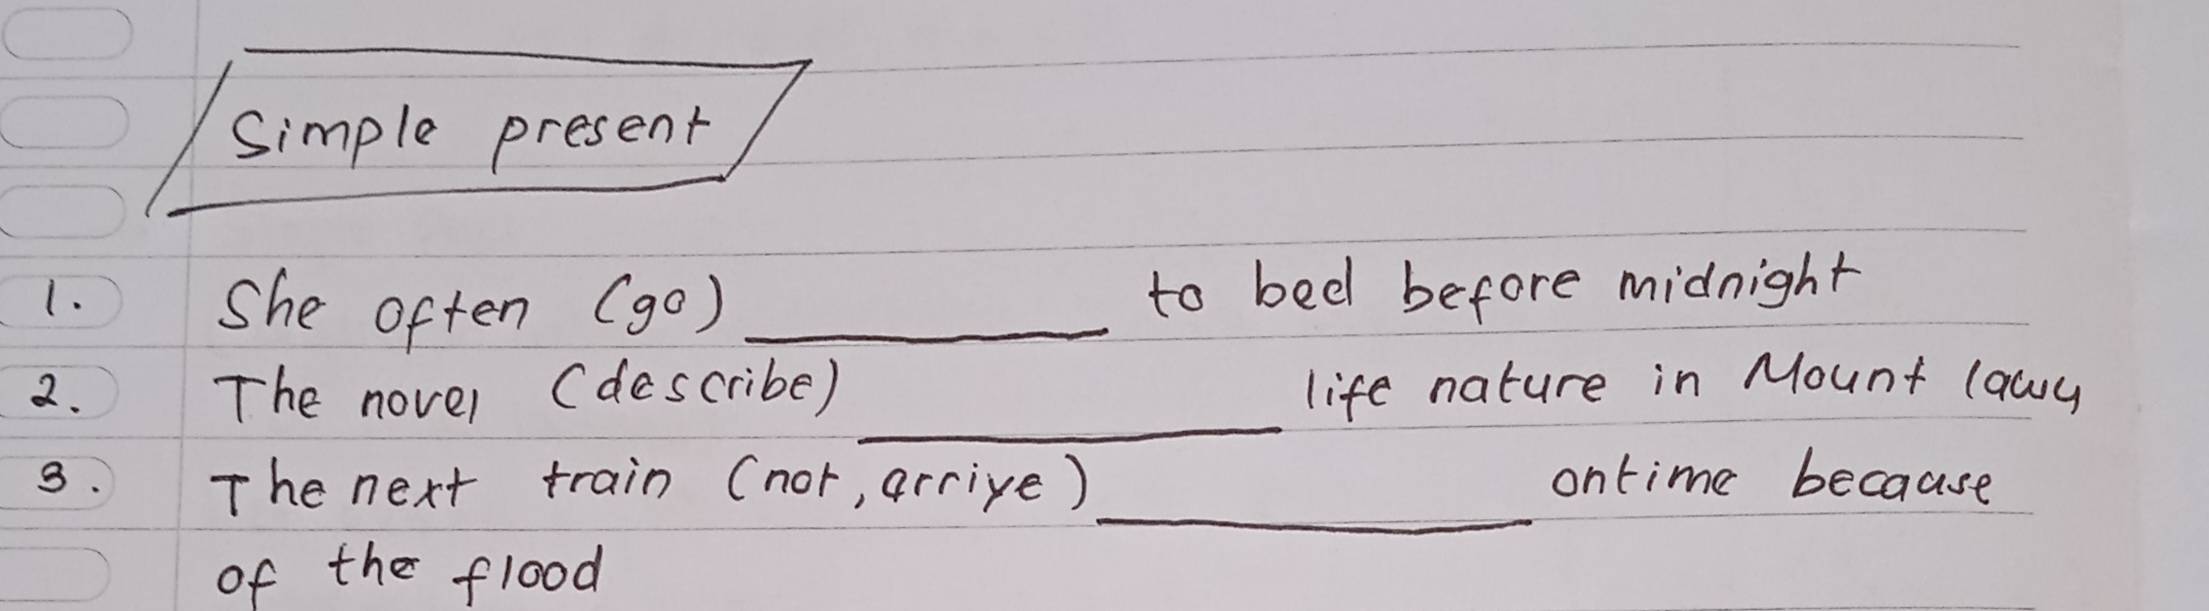 Simple present
1. She often (go) __________ to bed before midnight
2. The novel (describe) __________ life nature in Mount lawu
3. The next train (not, arrive) __________ ontime because
of the flood